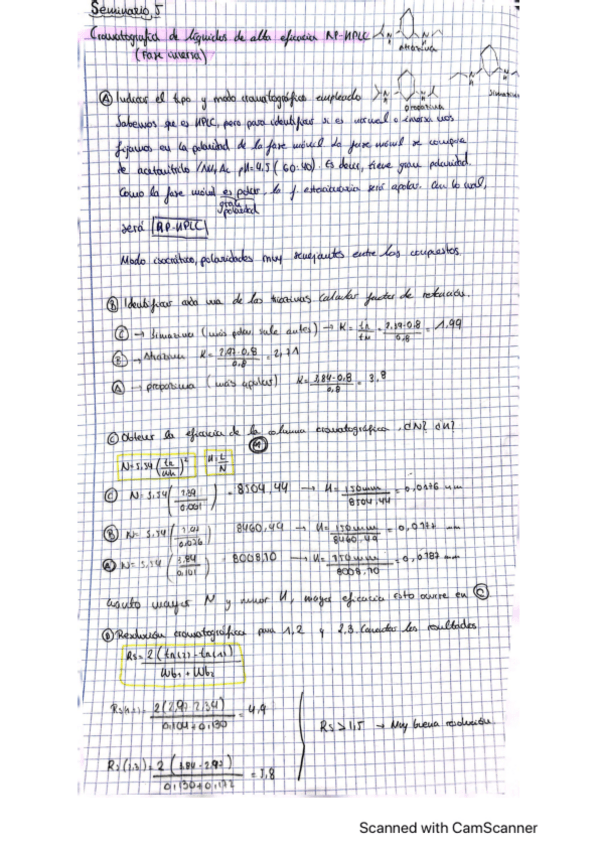 Seminario 5
Cromatografía de líquidos de alta eficacia RP-HPLC
(Fase inversa)
Atrazina
Simazina
Propazina
Ⓐ Indicar el tipo y modo cromatográfico empleado
Sabemos que es HPLC, pero para identificar si es normal o inversa nos
fijamos en la polaridad de la fase móvil. La fase móvil se compone
de acetonitrilo / NH4Ac pH=4,5 (60:40). Es decir, tiene gran polaridad.
Como la fase móvil es polar, la f estacionaria será apolar. Con lo cual,
gran polaridad
será RP-HPLC
Modo isocrático, polaridades muy semejantes entre los compuestos.
Ⓑ Identificar cada una de las triazinas. Calcular factor de retención.
Ⓒ → Simazina (más polar sale antes) → K = = 2,39-0,8 / 0,8 = 1,99
Ⓑ → Atrazina K = 2,97-0,8 / 0,8 = 2,71
Ⓐ → propazina (más apolar) K = 3,84-0,8 / 0,8 = 3,8
Ⓒ Obtener la eficacia de la columna cromatográfica. ¿N? ¿H?
N = 5,54 (tR / Wh)² H = L / N
Ⓒ N = 5,54 ( / ) = 8504,44 → H = 150mm / 8504,44 = 0,0176 mm
Ⓑ N = 5,54 ( / 0,076) 8460,49 → H = 150mm / 8460,49 = 0,0177 mm
Ⓐ N = 5,54 (3,84 / 0,101) = 8008,70 → H = 150mm / 8008,70 = 0,0187 mm
cuanto mayor N y menor H, mayor eficacia esto ocurre en Ⓒ
Ⓓ Resolución cromatográfica para 1,2 y 2,3. Comentar los resultados
Rs = 2(tR(2) - tR(1)) / Wb1 + Wb2
Rs(1,2) = 2(2,97-2,39) / 0,104+0,130 = 4,9
Rs > 1,5 → Muy buena resolución.
Rs(2,3) = 2(3,84-2,97) / 0,130+0,172 = 5,8
Scanned with CamScanner